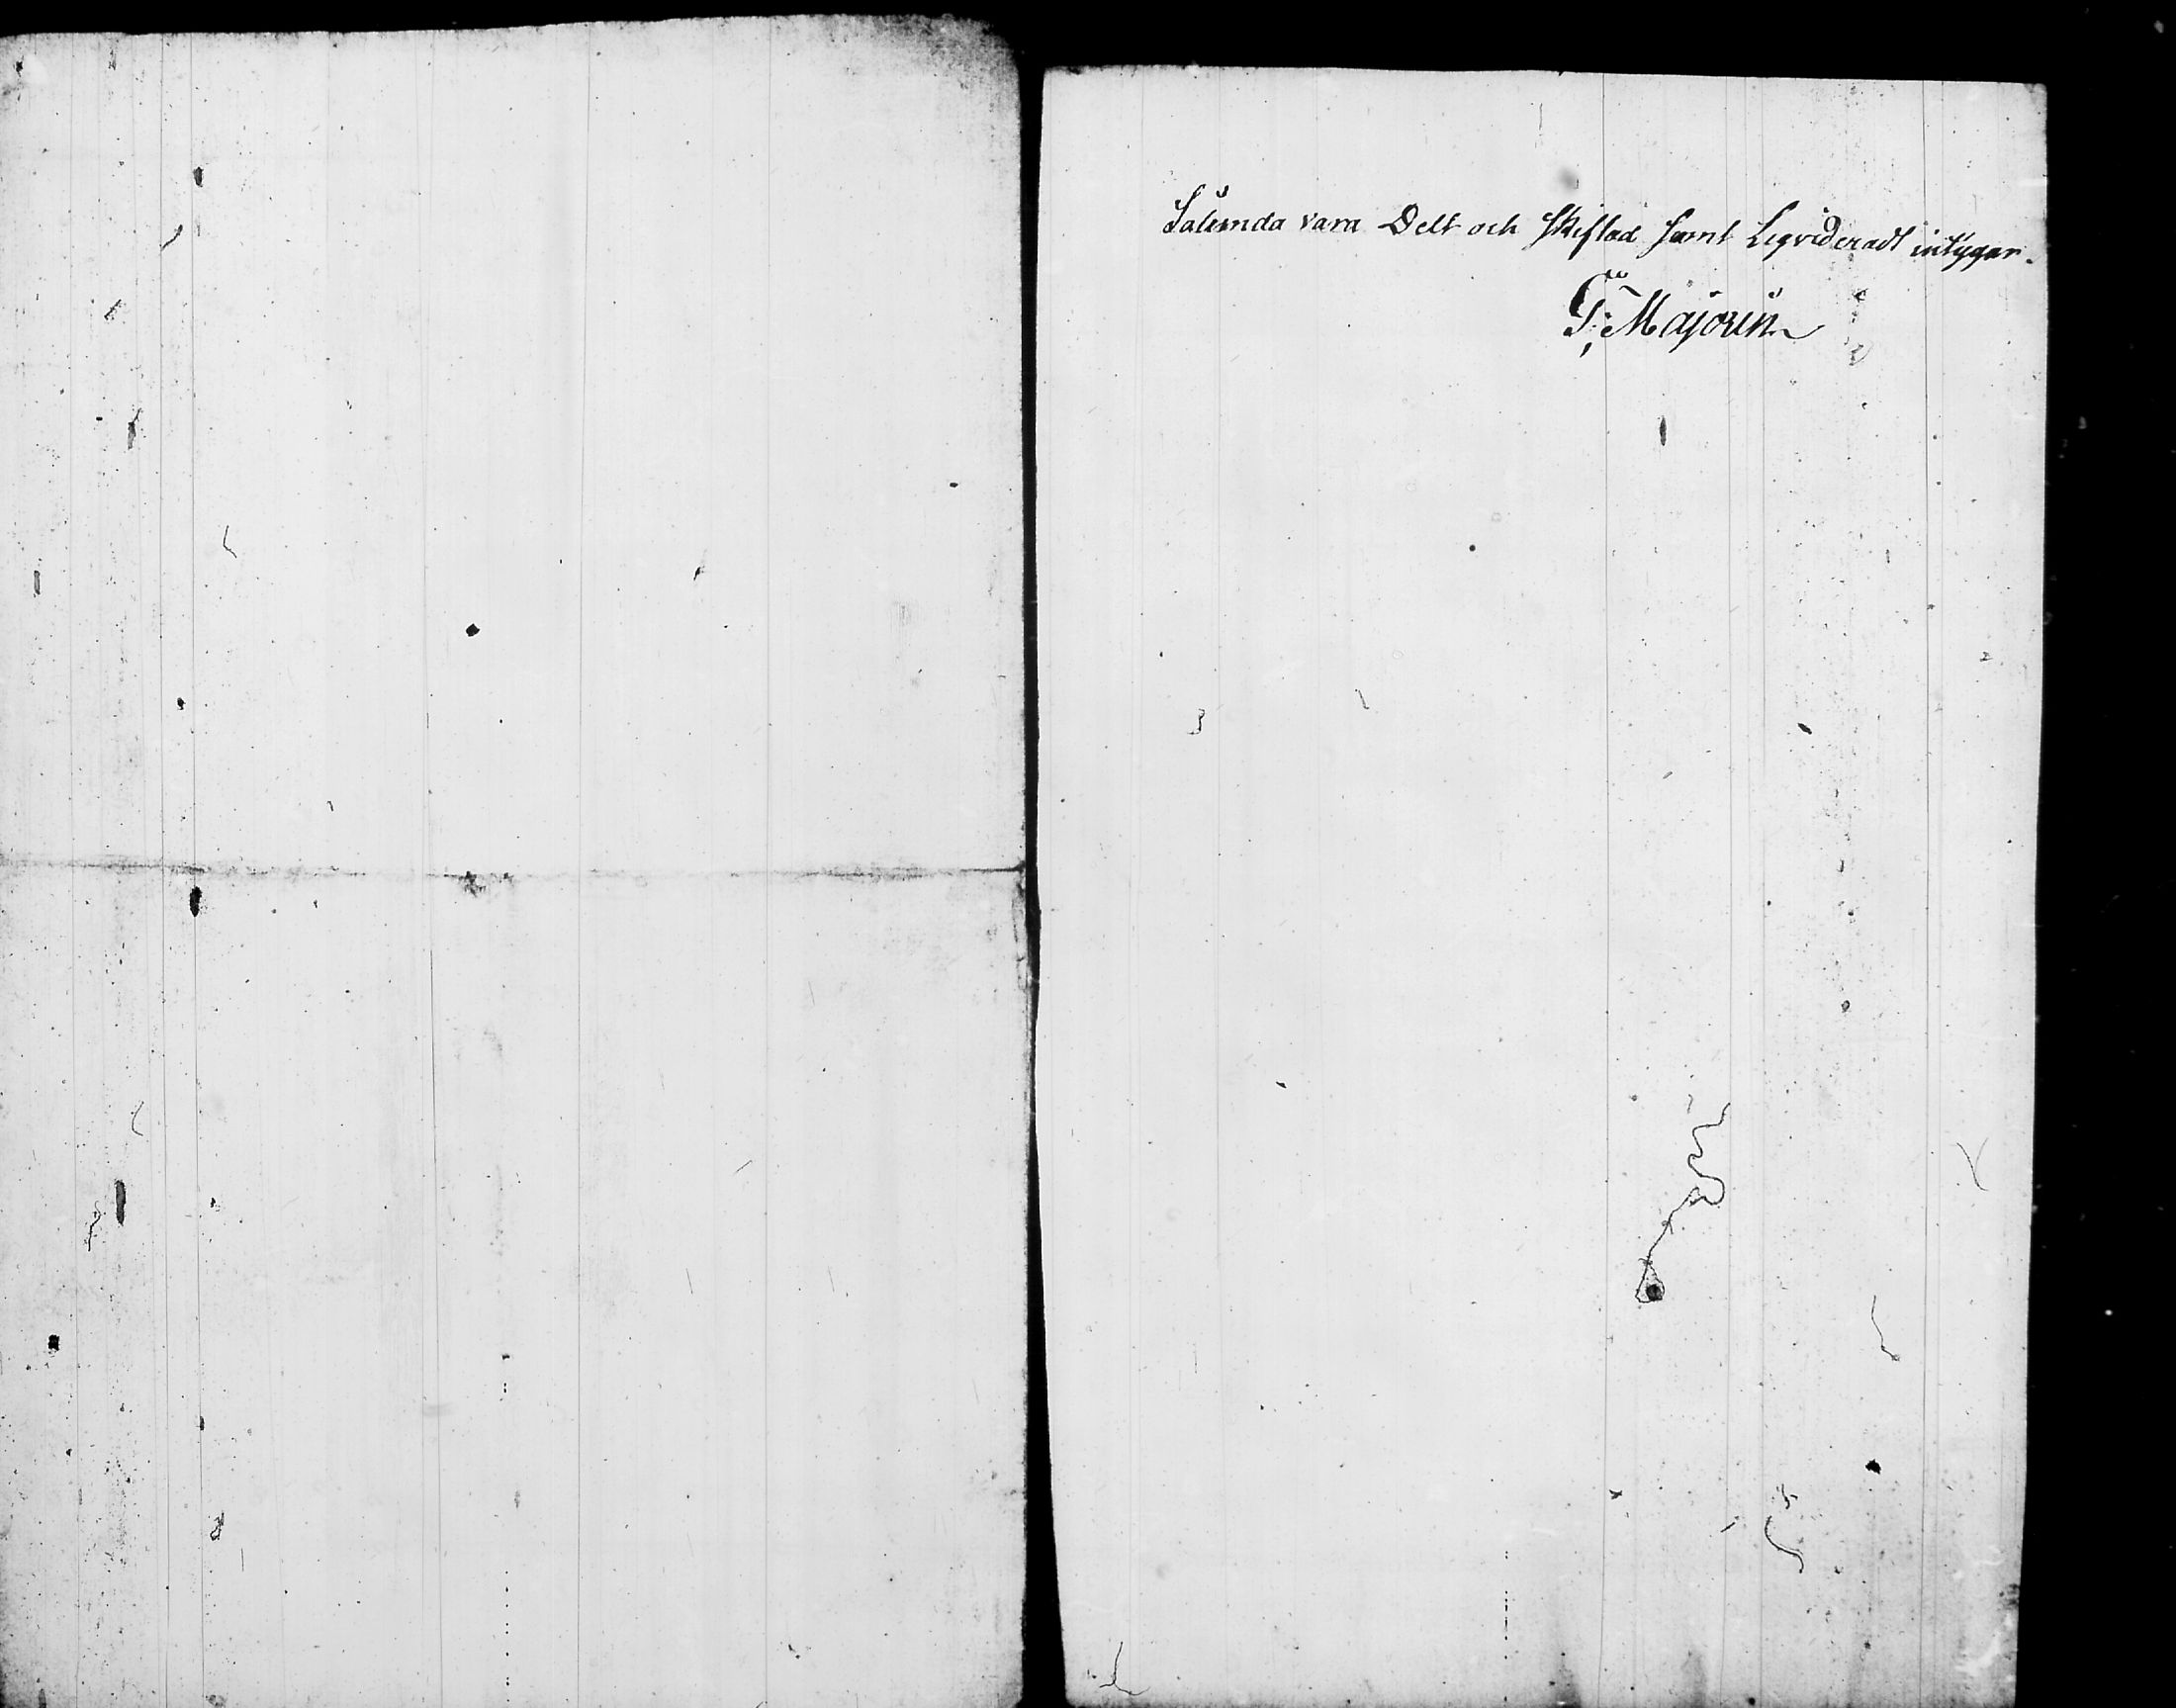 Sålunda vara Delt och skiftad samt Liqvideradt intygar.
G: Majorin